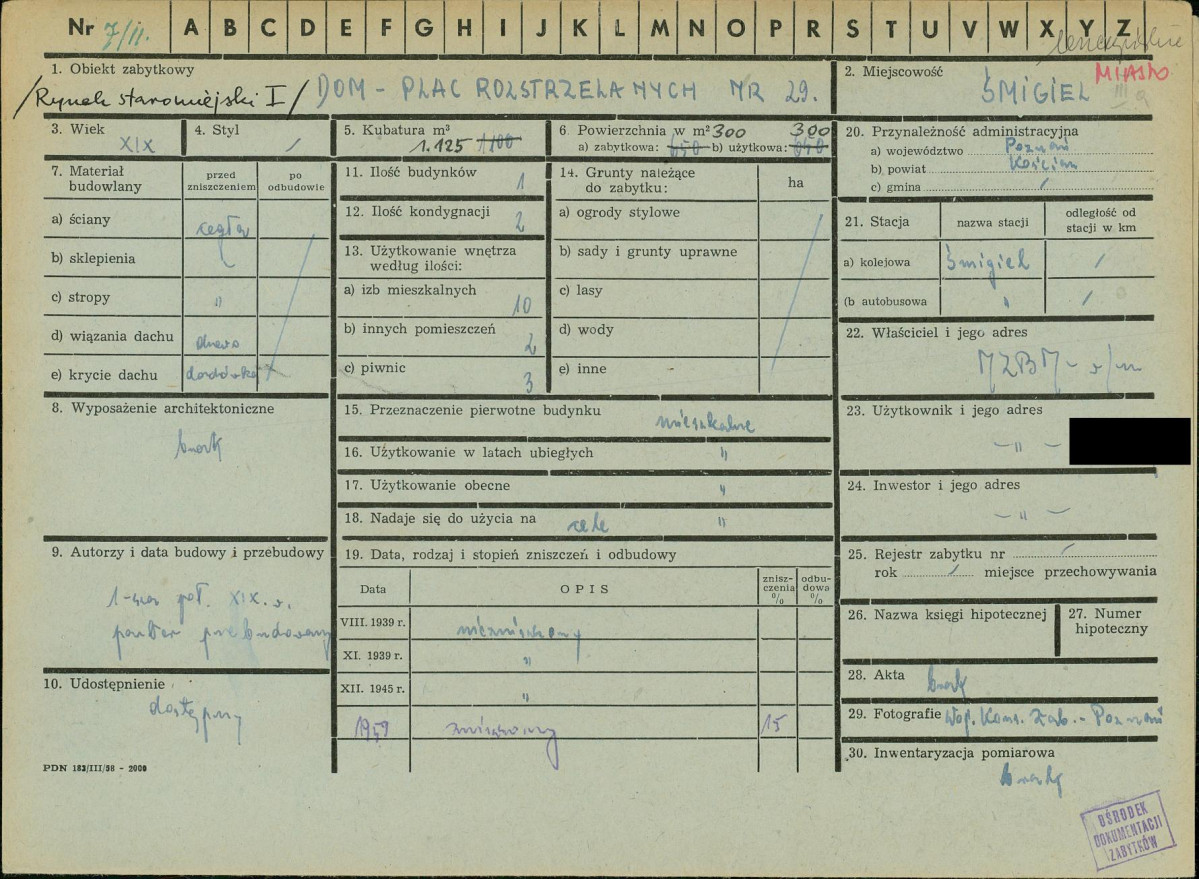 Nr 7/II. A B C D E F G H I J K L M N O P R S T U V W X Y Z
1. Obiekt zabytkowy
/Rynek staromiejski I/ DOM - PLAC ROZSTRZELANYCH NR 29.
2. Miejscowość
MIASTO
ŚMIGIEL
III a
3. Wiek
XIX
4. Styl
/
5. Kubatura m³
1.125 1100
6. Powierzchnia w m² 300 300
a) zabytkowa: 650 b) użytkowa: 650
20. Przynależność administracyjna
a) województwo Poznań
b) powiat Kościan
c) gmina /
7. Materiał budowlany
przed zniszczeniem
po odbudowie
a) ściany cegła
b) sklepienia
c) stropy "
d) wiązania dachu drewo
e) krycie dachu dachówka
11. Ilość budynków 1
12. Ilość kondygnacji 2
13. Użytkowanie wnętrza
według ilości:
a) izb mieszkalnych 10
b) innych pomieszczeń 2
c) piwnic 3
14. Grunty należące
do zabytku:
ha
a) ogrody stylowe
b) sady i grunty uprawne
c) lasy
d) wody
e) inne
21. Stacja
nazwa stacji
odległość od
stacji w km
a) kolejowa Śmigiel /
(b autobusowa " /
22. Właściciel i jego adres
MZBM - w/m
8. Wyposażenie architektoniczne
brak
15. Przeznaczenie pierwotne budynku mieszkalne
16. Użytkowanie w latach ubiegłych "
17. Użytkowanie obecne "
18. Nadaje się do użycia na cele "
23. Użytkownik i jego adres
- " -
24. Inwestor i jego adres
- " -
9. Autorzy i data budowy i przebudowy
1-sza poł. XIX. w.
parter przebudowany
19. Data, rodzaj i stopień zniszczeń i odbudowy
Data
OPIS
znisz-
czenia
%
odbu-
dowa
%
VIII. 1939 r. niezniszczony
XI. 1939 r. "
XII. 1945 r. "
1959 zniszczony 15
25. Rejestr zabytku nr /
rok / miejsce przechowywania
26. Nazwa księgi hipotecznej
27. Numer
hipoteczny
10. Udostępnienie
dostępny
28. Akta brak
29. Fotografie Woj. Kons. Zab. - Poznań
30. Inwentaryzacja pomiarowa
brak
PDN 183/III/58 - 2000
OŚRODEK
DOKUMENTACJI
ZABYTKÓW